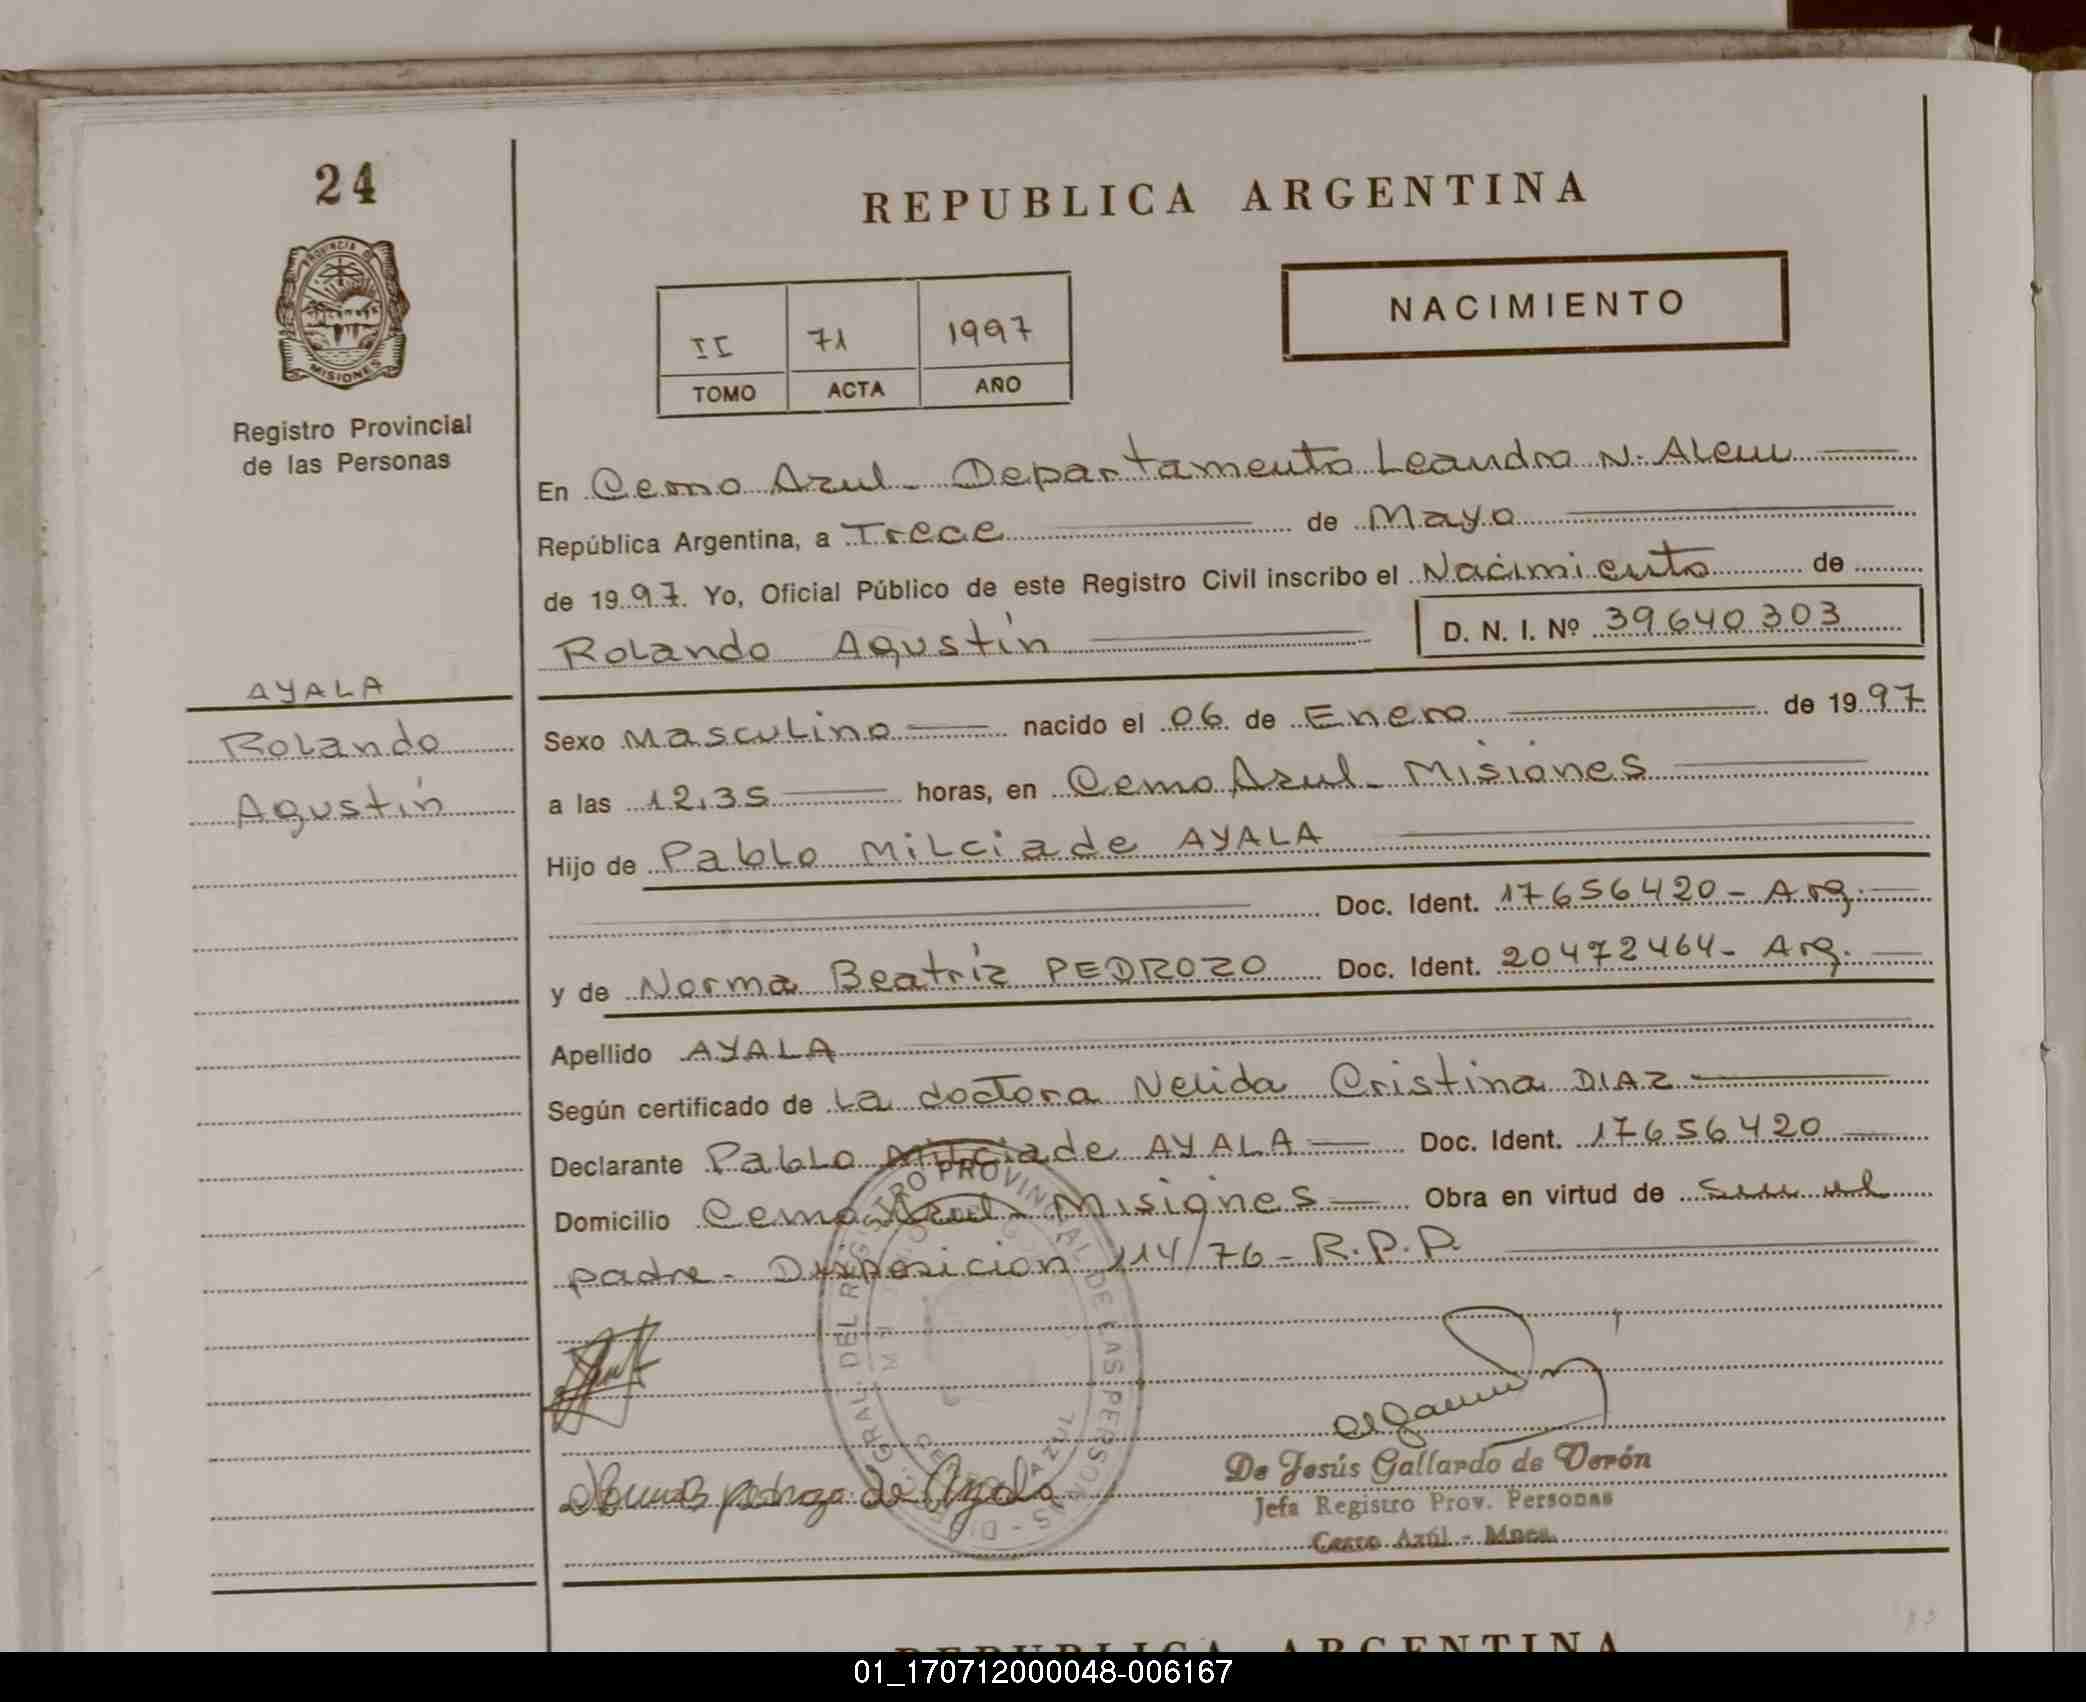 24
REPUBLICA ARGENTINA
PROVINCIA DE
MISIONES
Registro Provincial
de las Personas
II 71 1997
TOMO ACTA AÑO
NACIMIENTO
En Cerro Azul - Departamento Leandro N. Alem
República Argentina, a Trece de Mayo
de 1997. Yo, Oficial Público de este Registro Civil inscribo el Nacimiento de
Rolando Agustín D. N. I. Nº 39640303
AYALA
Rolando
Agustín
Sexo Masculino nacido el 06 de Enero de 1997
a las 12,35 horas, en Cerro Azul - Misiones
Hijo de Pablo Milciade AYALA
Doc. Ident. 17656420 - Arg.
y de Norma Beatríz PEDROZO Doc. Ident. 20472464 - Arg.
Apellido AYALA
Según certificado de la doctora Nelida Cristina DIAZ
Declarante Pablo Milciade AYALA Doc. Ident. 17656420
Domicilio Cerro Azul - Misiones Obra en virtud de ser el
padre - Disposicion 114/76 - R.P.P.
DEL REGISTRO PROVINCIAL DE LAS PERSONAS - GRAL.
AZUL
Norma pedrozo de Ayala
De Jesús Gallardo de Verón
Jefa Registro Prov. Personas
Cerro Azúl - Mnes.
REPUBLICA ARGENTINA
01_170712000048-006167